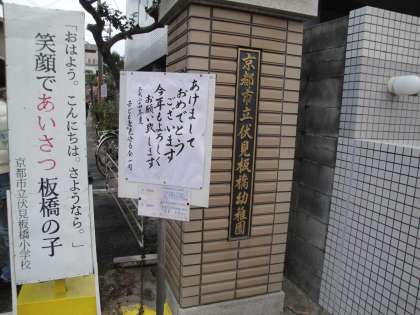 「おはよう。こんにちは。さようなら。」
笑顔であいさつ板橋の子
京都市立伏見板橋小学校
あけまして
おめでとう
ございます
今年もよろしく
お願い致します
京都市立伏見板橋幼稚園